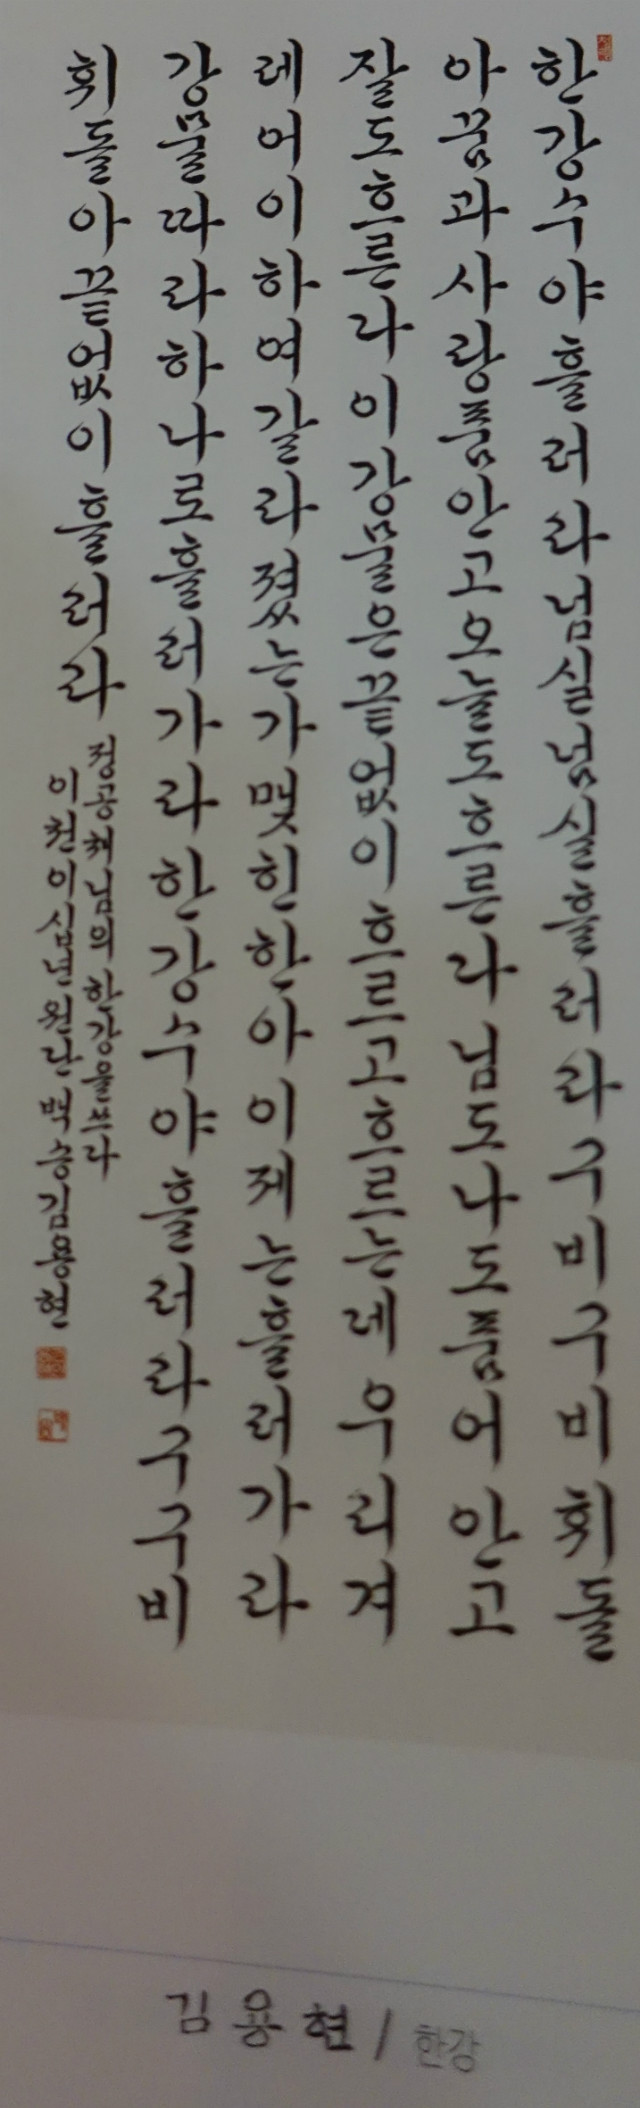 한강수야흘러라넘실넘실흘러라구비구비휘돌
아꿈과사랑품안고오늘도흐른라님도나도품어안고
잘도흐른라이강물은끝없이흐르고흐르는데우리겨
레어이하여갈라졌는가맺힌한아이제는흘러가라
강물따라하나로흘러가라한강수야흘러라구구비
휘돌아끝없이흘러라
정공채님의한강을쓰다
이천이십년원단백송김용현
김용현/한강